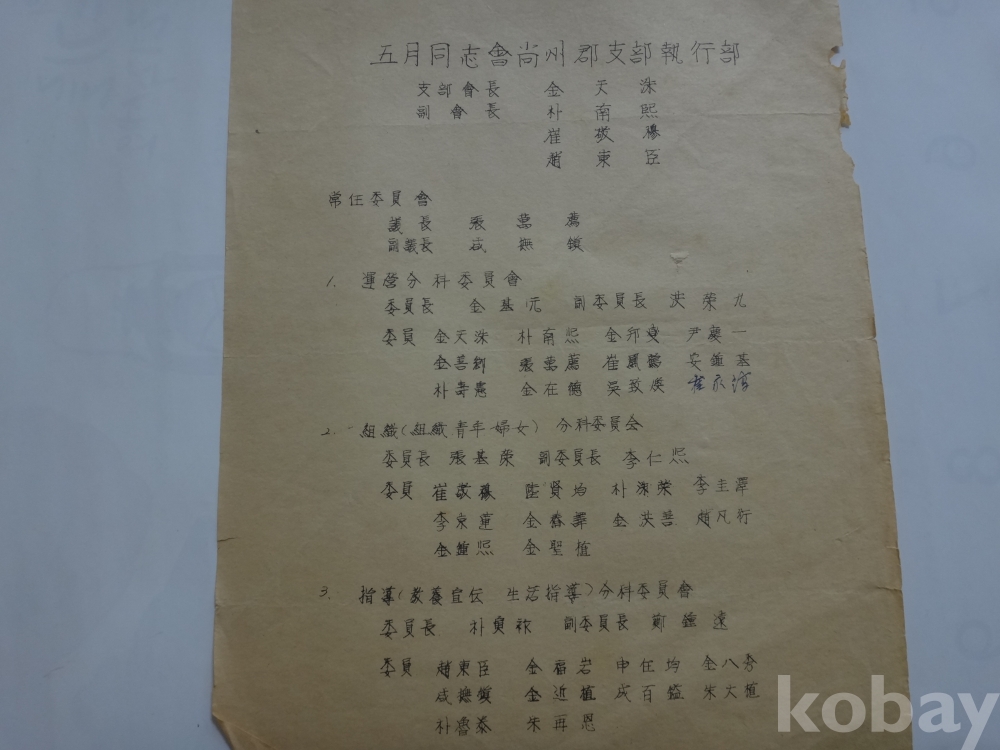 五月同志會尙州郡支部執行部
支部會長 金天洙
副會長 朴南熙
崔敬穆
趙東臣
常任委員會
議長 張萬薦
副議長 成撫鎭
1. 運營分科委員會
委員長 金基元 副委員長 洪榮九
委員 金天洙 朴南熙 金邦燮 尹慶一
金善 張萬薦 崔鳳鶴 安鍾基
朴壽憲 金在德 吳致煥 崔
2. 組織(組織靑年婦女) 分科委員会
委員長 張基榮 副委員長 李仁熙
委員 崔敬穆 陸賢均 朴淑榮 李圭澤
李京蓮 金春譯 金洪善 趙凡行
金鍾熙 金聖植
3. 指導(敎養宣伝 生活指導)分科委員會
委員長 朴貞祚 副委員長 鄭鍾遠
委員 趙東臣 金福岩 申任均 金八秀
成撫鎭 金近植 成百鎰 朱大植
朴魯泰 朱再恩
kobay